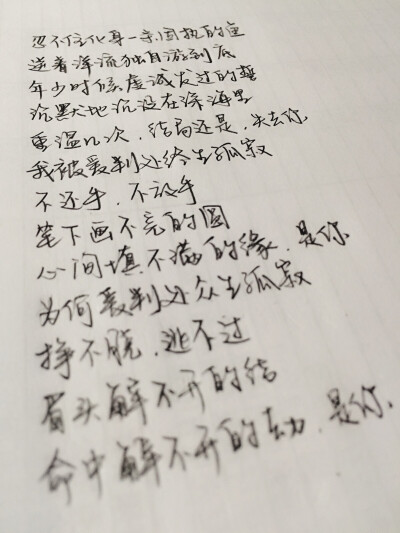 忍不住化身一条固执的鱼
逆着洋流独自游到底
年少时候虔诚发过的誓
沉默地沉没在深海里
重温几次，结局还是，失去你
我被爱判处终生孤寂
不还手，不放手
笔下画不完的圆
心间填不满的缘，是你
为何爱判处众生孤寂
挣不脱，逃不过
眉头解不开的结
命中解不开的劫，是你。